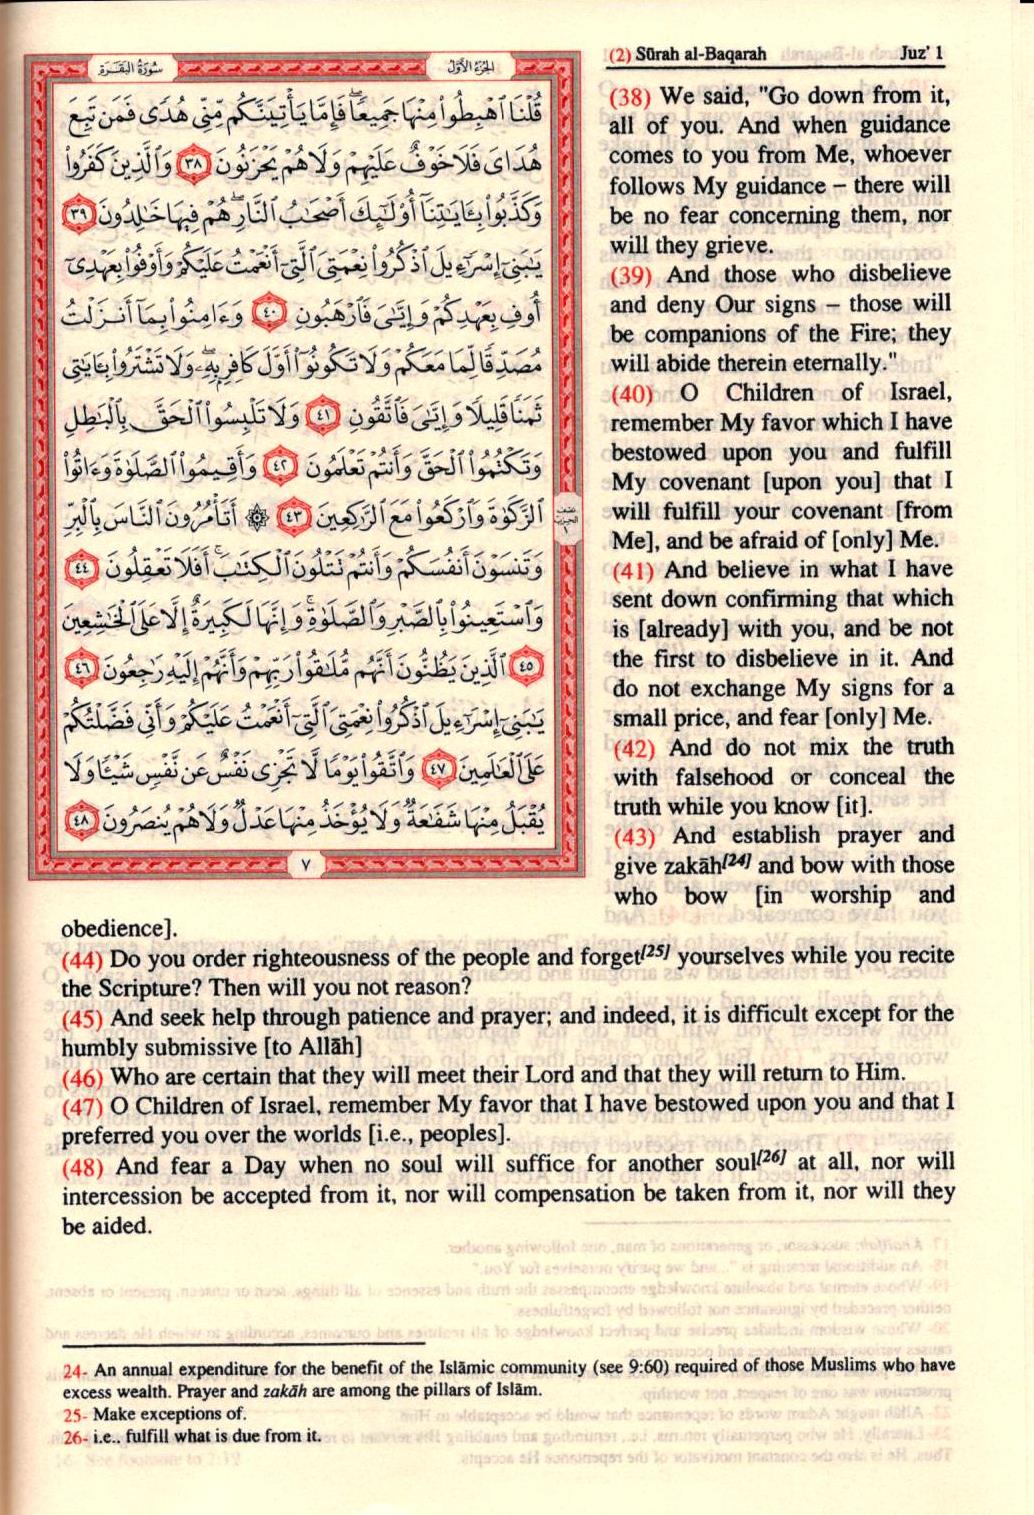 سورة البقرة
الجزء الأول
قُلْنَا ٱهْبِطُوا۟ مِنْهَا جَمِيعًۭا ۖ فَإِمَّا يَأْتِيَنَّكُم مِّنِّى هُدًۭى فَمَن تَبِعَ
هُدَاىَ فَلَا خَوْفٌ عَلَيْهِمْ وَلَا هُمْ يَحْزَنُونَ ٣٨ وَٱلَّذِينَ كَفَرُوا۟
وَكَذَّبُوا۟ بِـَٔايَـٰتِنَآ أُو۟لَـٰٓئِكَ أَصْحَـٰبُ ٱلنَّارِ ۖ هُمْ فِيهَا خَـٰلِدُونَ ٣٩
يَـٰبَنِىٓ إِسْرَٰٓءِيلَ ٱذْكُرُوا۟ نِعْمَتِىَ ٱلَّتِىٓ أَنْعَمْتُ عَلَيْكُمْ وَأَوْفُوا۟ بِعَهْدِىٓ
أُوفِ بِعَهْدِكُمْ وَإِيَّـٰىَ فَٱرْهَبُونِ ٤٠ وَءَامِنُوا۟ بِمَآ أَنزَلْتُ
مُصَدِّقًۭا لِّمَا مَعَكُمْ وَلَا تَكُونُوٓا۟ أَوَّلَ كَافِرٍۭ بِهِۦ ۖ وَلَا تَشْتَرُوا۟ بِـَٔايَـٰتِى
ثَمَنًۭا قَلِيلًۭا وَإِيَّـٰىَ فَٱتَّقُونِ ٤١ وَلَا تَلْبِسُوا۟ ٱلْحَقَّ بِٱلْبَـٰطِلِ
وَتَكْتُمُوا۟ ٱلْحَقَّ وَأَنتُمْ تَعْلَمُونَ ٤٢ وَأَقِيمُوا۟ ٱلصَّلَوٰةَ وَءَاتُوا۟
ٱلزَّكَوٰةَ وَٱرْكَعُوا۟ مَعَ ٱلرَّٰكِعِينَ ٤٣ ۞ أَتَأْمُرُونَ ٱلنَّاسَ بِٱلْبِرِّ
وَتَنسَوْنَ أَنفُسَكُمْ وَأَنتُمْ تَتْلُونَ ٱلْكِتَـٰبَ ۚ أَفَلَا تَعْقِلُونَ ٤٤
وَٱسْتَعِينُوا۟ بِٱلصَّبْرِ وَٱلصَّلَوٰةِ ۚ وَإِنَّهَا لَكَبِيرَةٌ إِلَّا عَلَى ٱلْخَـٰشِعِينَ
٤٥ ٱلَّذِينَ يَظُنُّونَ أَنَّهُم مُّلَـٰقُوا۟ رَبِّهِمْ وَأَنَّهُمْ إِلَيْهِ رَٰجِعُونَ ٤٦
يَـٰبَنِىٓ إِسْرَٰٓءِيلَ ٱذْكُرُوا۟ نِعْمَتِىَ ٱلَّتِىٓ أَنْعَمْتُ عَلَيْكُمْ وَأَنِّى فَضَّلْتُكُمْ
عَلَى ٱلْعَـٰلَمِينَ ٤٧ وَٱتَّقُوا۟ يَوْمًۭا لَّا تَجْزِى نَفْسٌ عَن نَّفْسٍۢ شَيْـًۭٔا وَلَا
يُقْبَلُ مِنْهَا شَفَـٰعَةٌۭ وَلَا يُؤْخَذُ مِنْهَا عَدْلٌۭ وَلَا هُمْ يُنصَرُونَ ٤٨
٧
(2) Sūrah al-Baqarah Juz’ 1
(38) We said, "Go down from it,
all of you. And when guidance
comes to you from Me, whoever
follows My guidance – there will
be no fear concerning them, nor
will they grieve.
(39) And those who disbelieve
and deny Our signs – those will
be companions of the Fire; they
will abide therein eternally."
(40) O Children of Israel,
remember My favor which I have
bestowed upon you and fulfill
My covenant [upon you] that I
will fulfill your covenant [from
Me], and be afraid of [only] Me.
(41) And believe in what I have
sent down confirming that which
is [already] with you, and be not
the first to disbelieve in it. And
do not exchange My signs for a
small price, and fear [only] Me.
(42) And do not mix the truth
with falsehood or conceal the
truth while you know [it].
(43) And establish prayer and
give zakāh[24] and bow with those
who bow [in worship and
obedience].
(44) Do you order righteousness of the people and forget[25] yourselves while you recite
the Scripture? Then will you not reason?
(45) And seek help through patience and prayer; and indeed, it is difficult except for the
humbly submissive [to Allāh]
(46) Who are certain that they will meet their Lord and that they will return to Him.
(47) O Children of Israel, remember My favor that I have bestowed upon you and that I
preferred you over the worlds [i.e., peoples].
(48) And fear a Day when no soul will suffice for another soul[26] at all, nor will
intercession be accepted from it, nor will compensation be taken from it, nor will they
be aided.
24- An annual expenditure for the benefit of the Islāmic community (see 9:60) required of those Muslims who have
excess wealth. Prayer and zakāh are among the pillars of Islām.
25- Make exceptions of.
26- i.e., fulfill what is due from it.